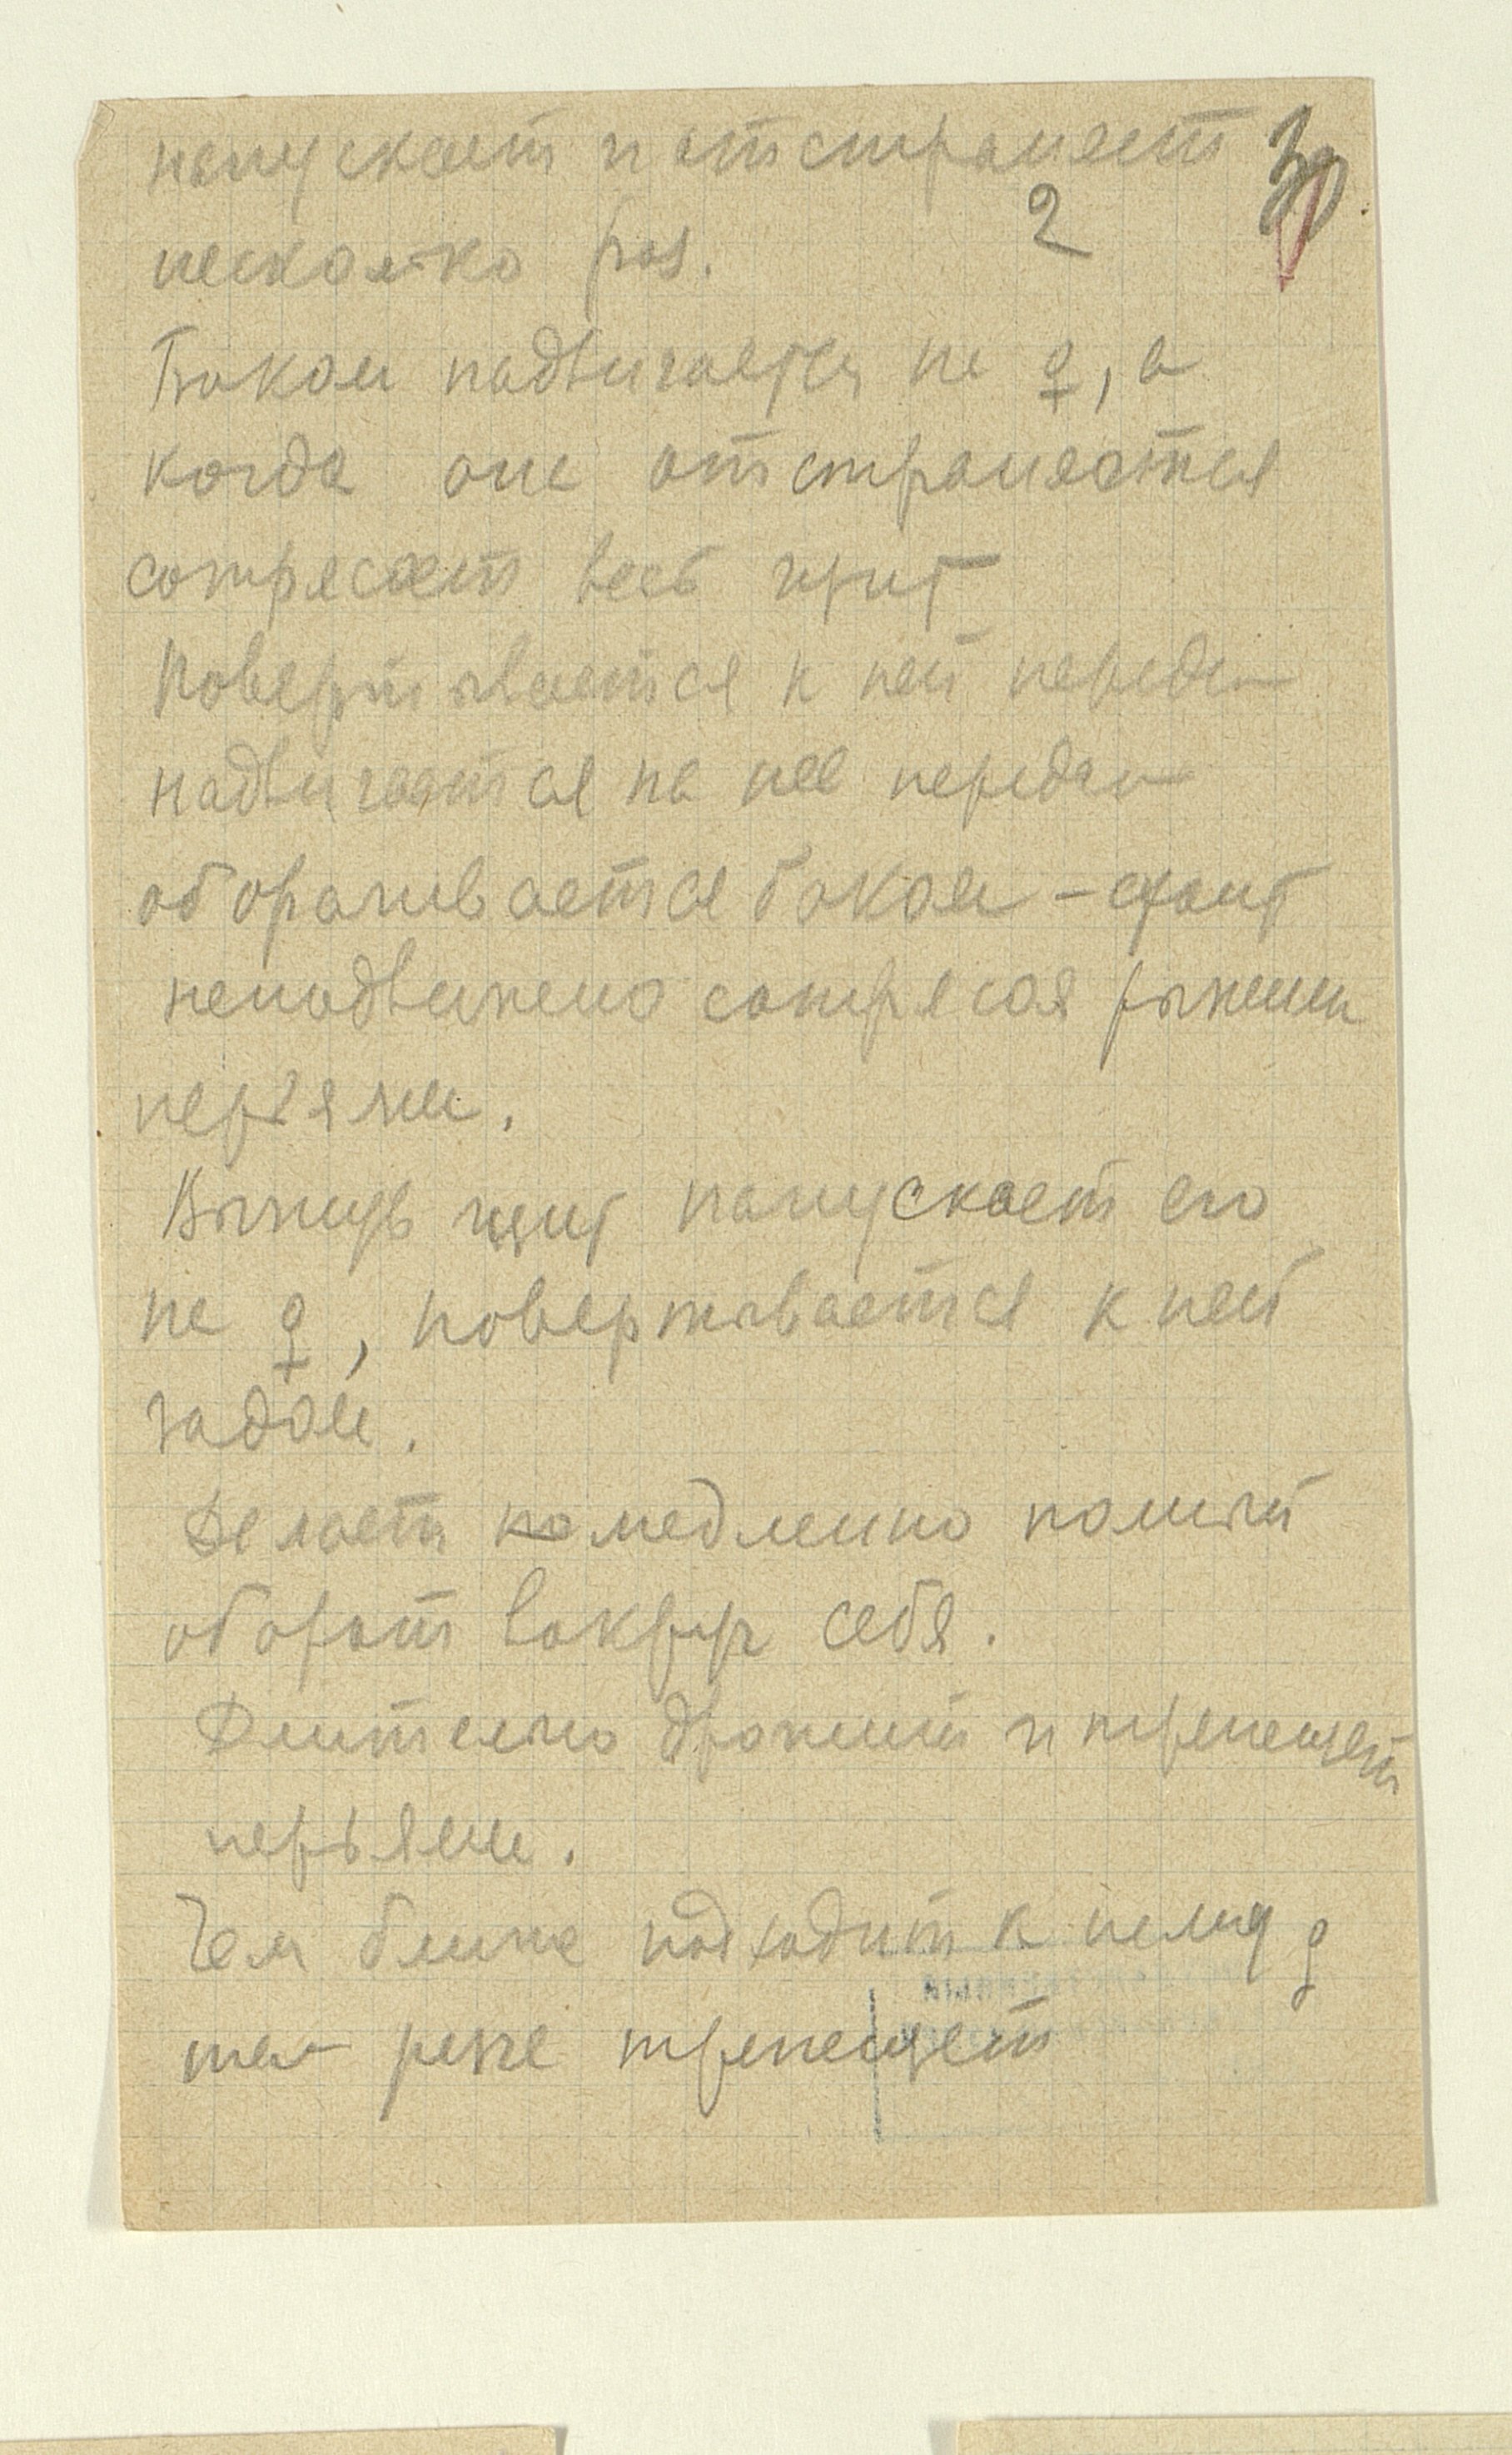 напускает и отстраняет
2
несколько раз.
Боком надвигается на ♀, а
когда она отстраняется
сотрясает весь щит
Повертывается к ней передом
надвигается на нее передом
оборачивается боком – стоит
неподвижно сотрясая рыжими
перьями.
щит напускает его
на ♀, повертывается к ней
задом.
Делает медленно полный
оборот вокруг себя.
Длительно дрожит и трепещет
перьями.
Чем ближе подходит к нему ♀
тем реже трепещет